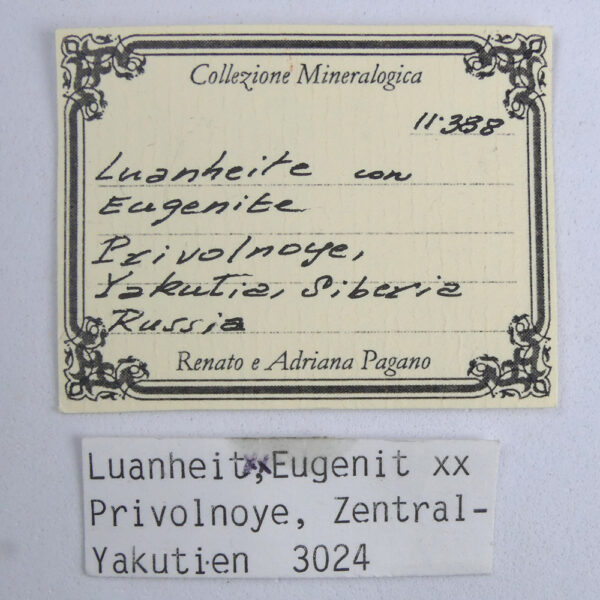 Collezione Mineralogica
11.388
Luanheite con
Eugenite
Privolnoye,
Yakutia, Siberia
Russia
Renato e Adriana Pagano
Luanheit, Eugenit xx
Privolnoye, Zentral-
Yakutien 3024